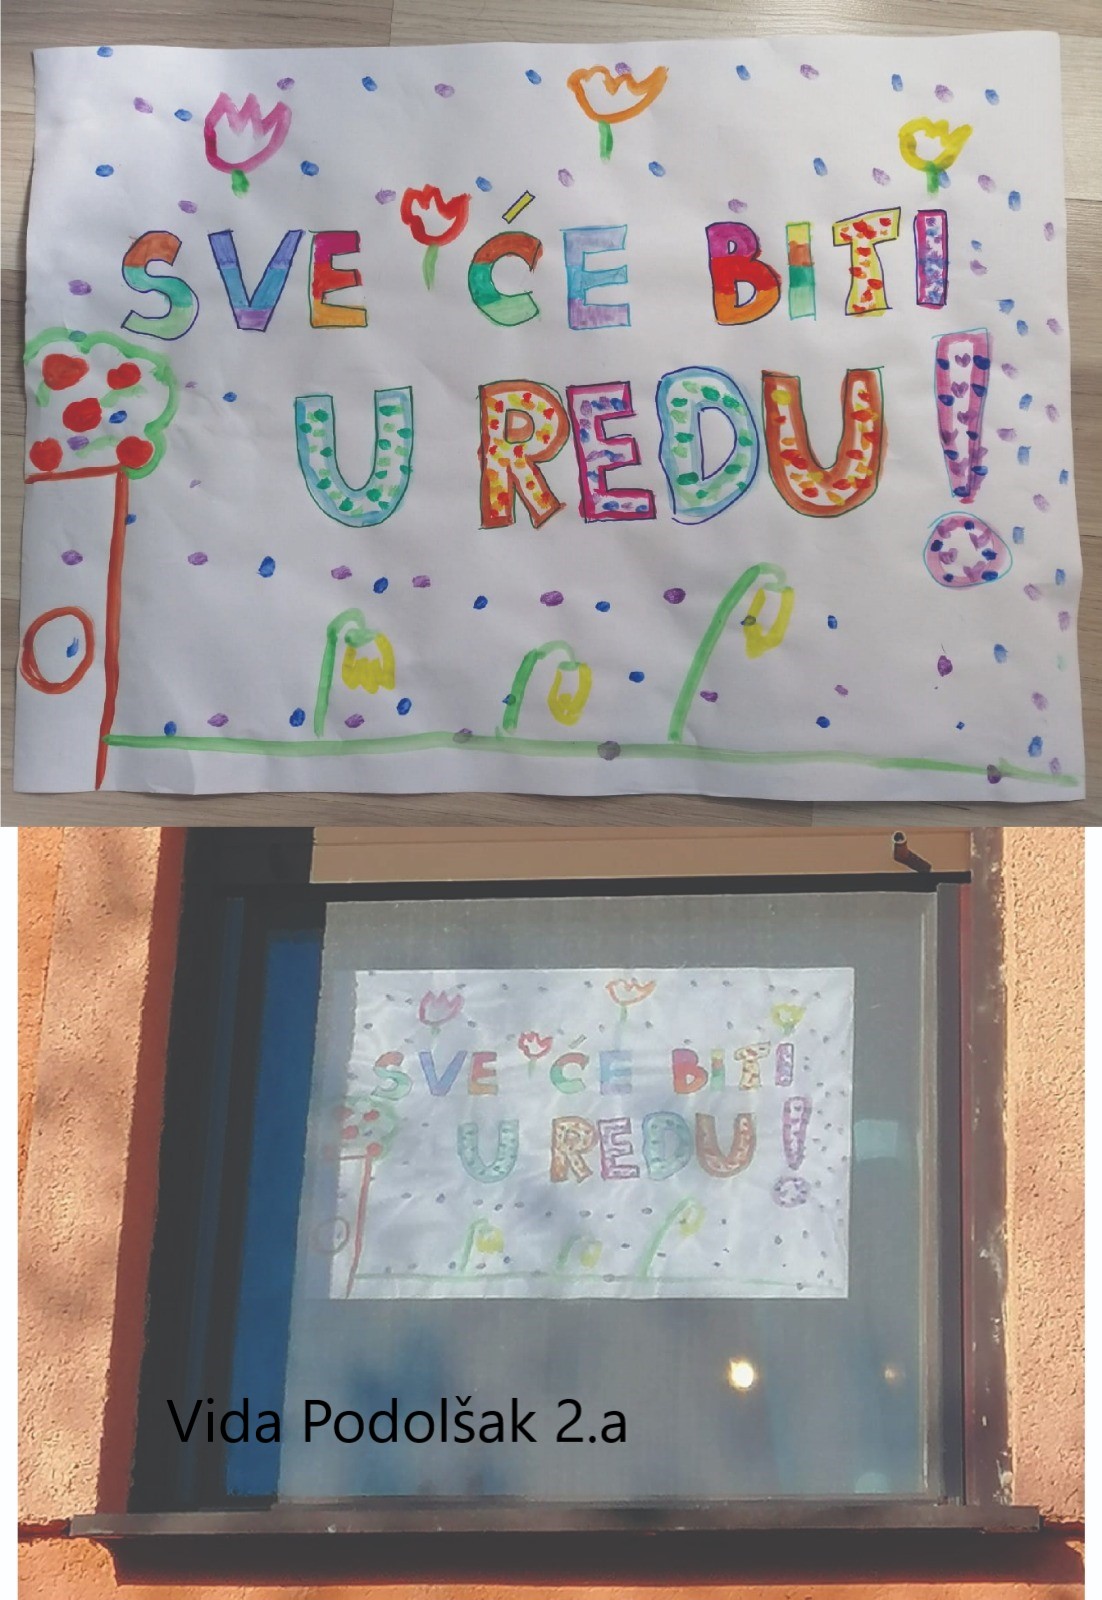 SVE ĆE BITI
U REDU!
SVE ĆE BITI
U REDU!
Vida Podolšak 2.a